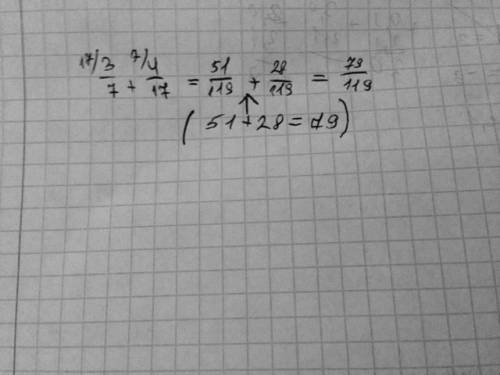 17/3/7 + 7/4/17 = 51/119 + 28/119 = 79/119
( 51+28=79)